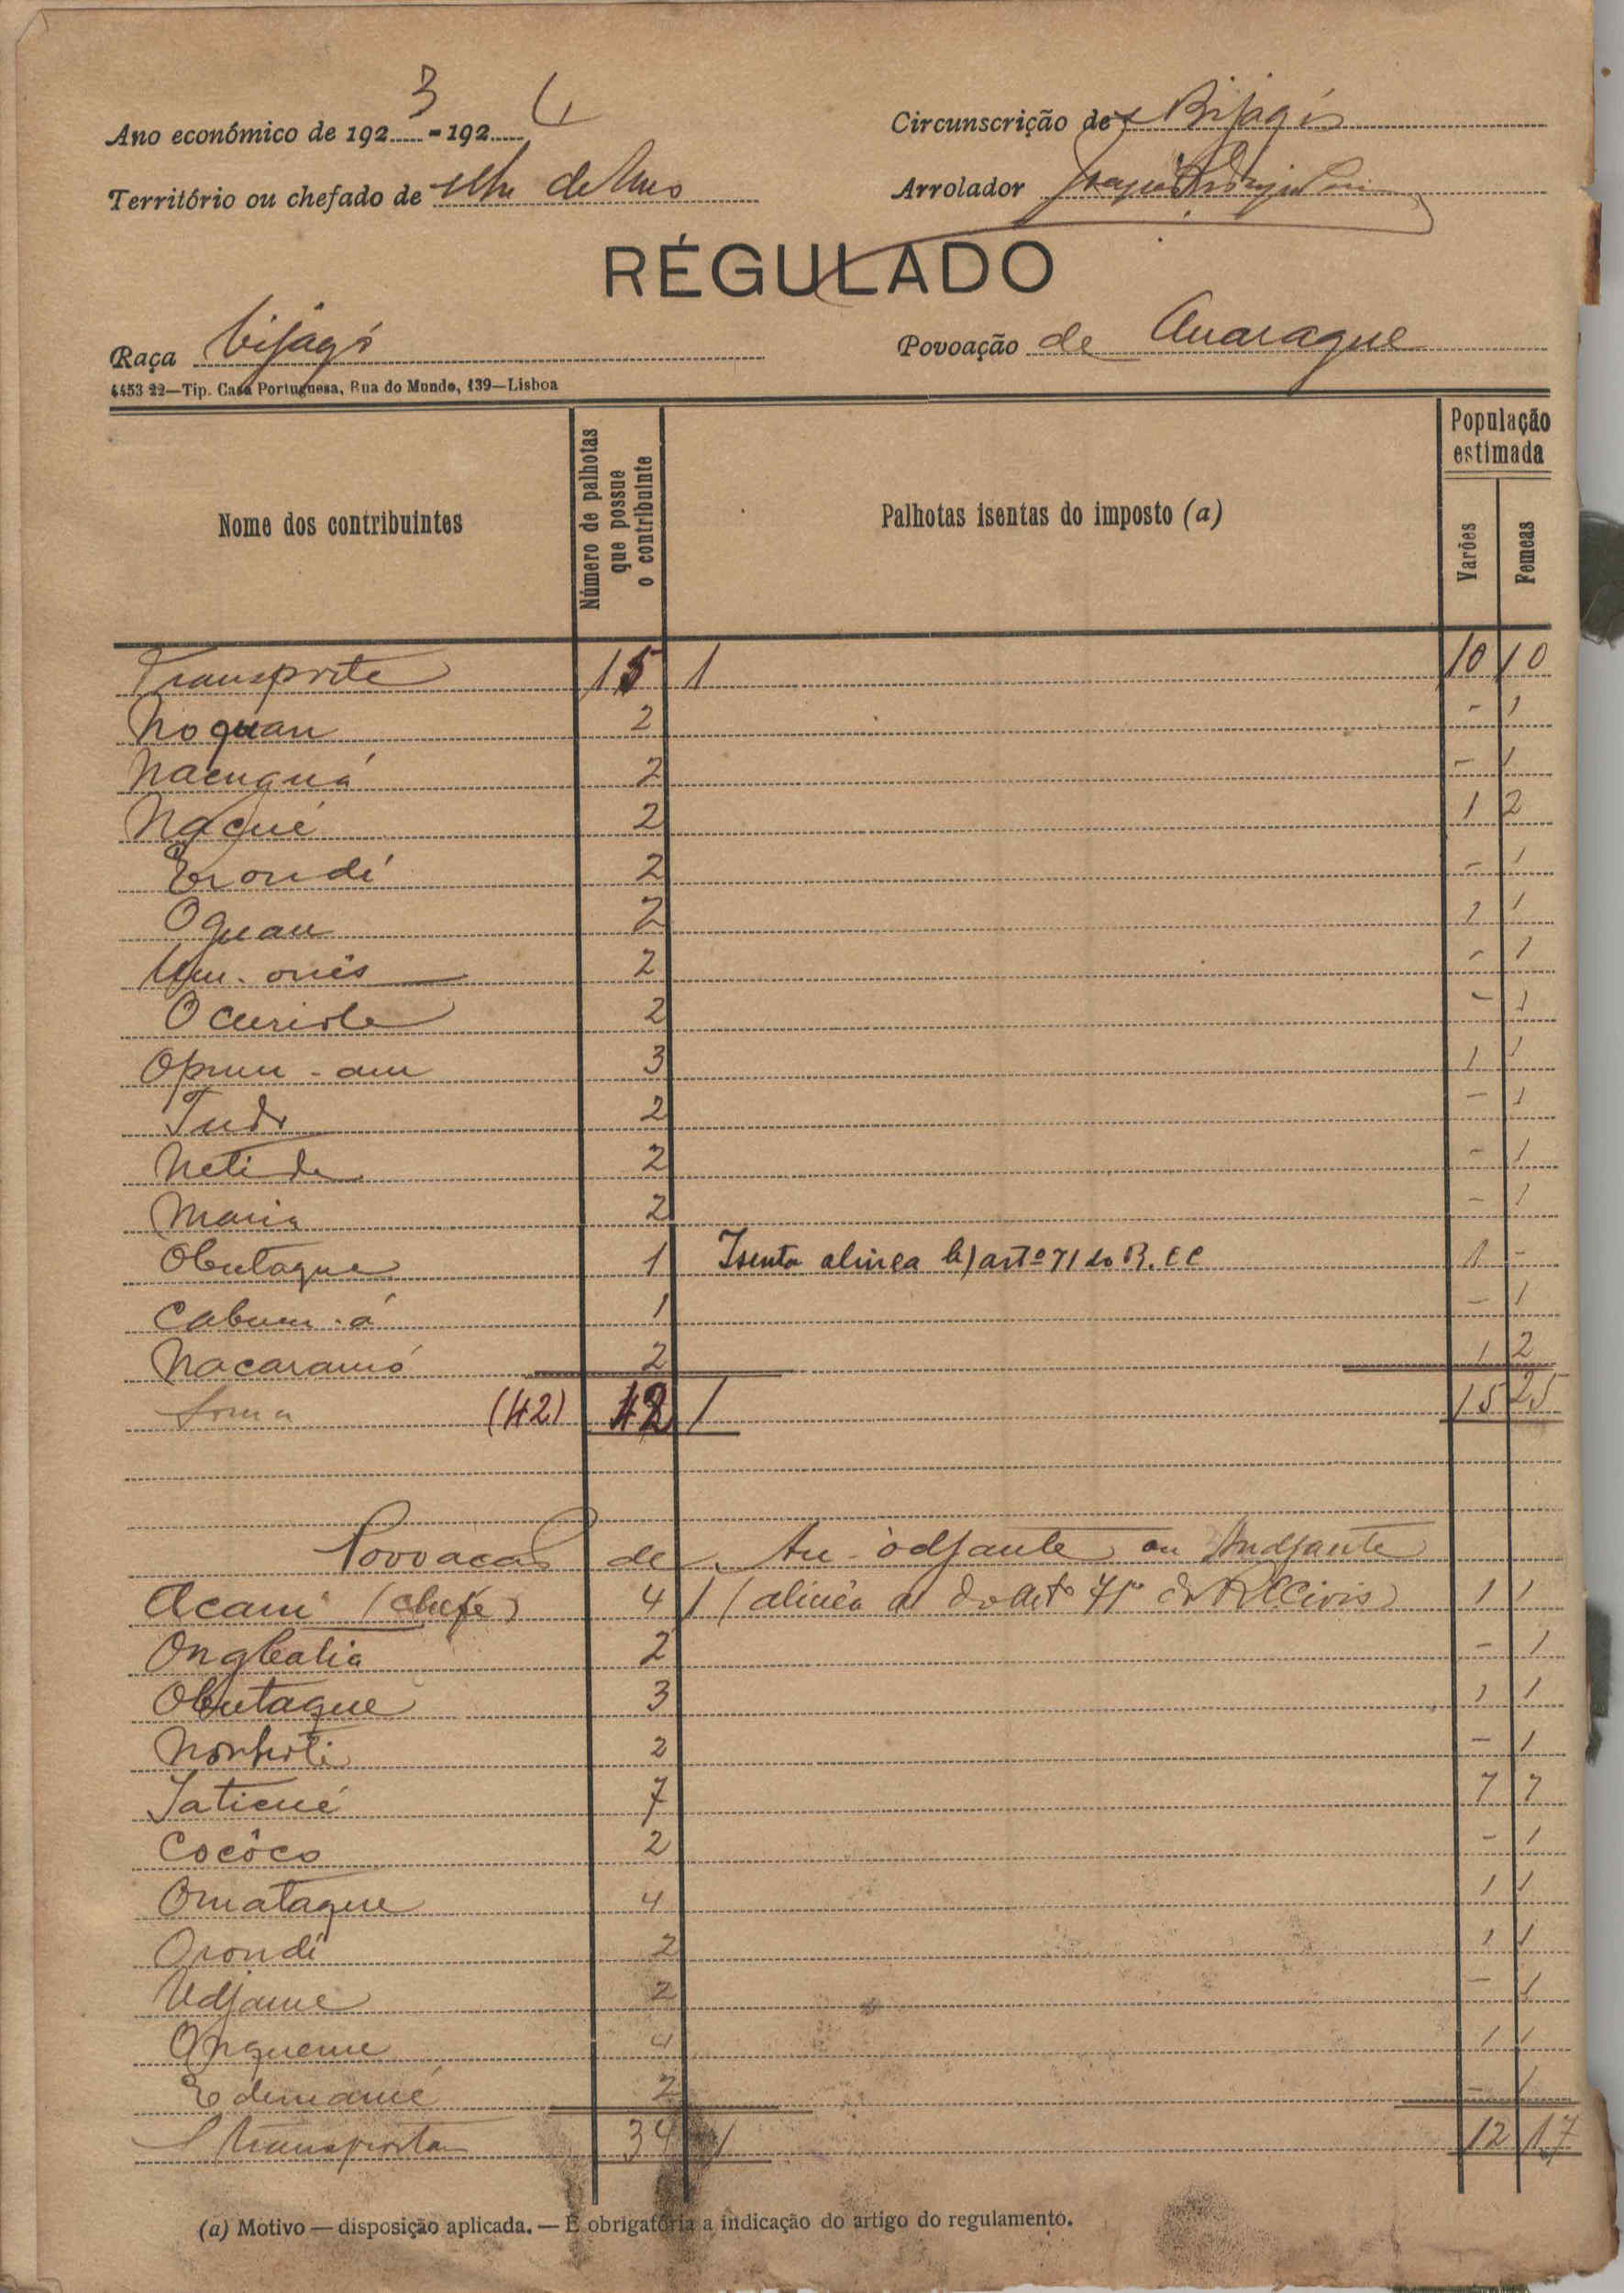 Ano económico de 1923-1924 Circunscrição de Bijagós
Território ou chefado de Ilha de Uno Arrolador
RÉGULADO
Raça bijagó Povoação de Anaraque
4453 22—Tip. Casa Portuguesa, Rua do Mundo, 139—Lisboa
Nome dos contribuintes
Número de palhotas que possue o contribuinte
Palhotas isentas do imposto (a)
População estimada
Varões
Femeas
Transporte 15 1 10 10
Noquan 2 - 1
Nacuguá 2 - 1
Naqué 2 1 2
Erondi 2 - 1
Oquan 2 1 1
2 - 1
Ocuriole 2 - 1
Opum-am 3 1 1
Tudo 2 - 1
Netide 2 - 1
Maria 2 - 1
Obutaque 1 Isenta alinea b) artº 71 do R. C C 1 -
Cabum-á 1 - 1
Nacaramó 2 1 2
Soma (42) 42 1 15 25
Povoacão de An-òdjante ou Andjante
Acami (chefe) 4 1 (alinéa a do artº 71º do R CCivis) 1 1
Ongbalia 2 - 1
Obutaque 3 1 1
2 - 1
Saticué 7 7 7
Cocôco 2 - 1
Omataque 4 1 1
Orondi 2 1 1
Udjame 2 - 1
Onqueme 4 1 1
Edemamé 2 - 1
Transporta 34 1 12 17
(a) Motivo — disposição aplicada. — É obrigatória a indicação do artigo do regulamento.